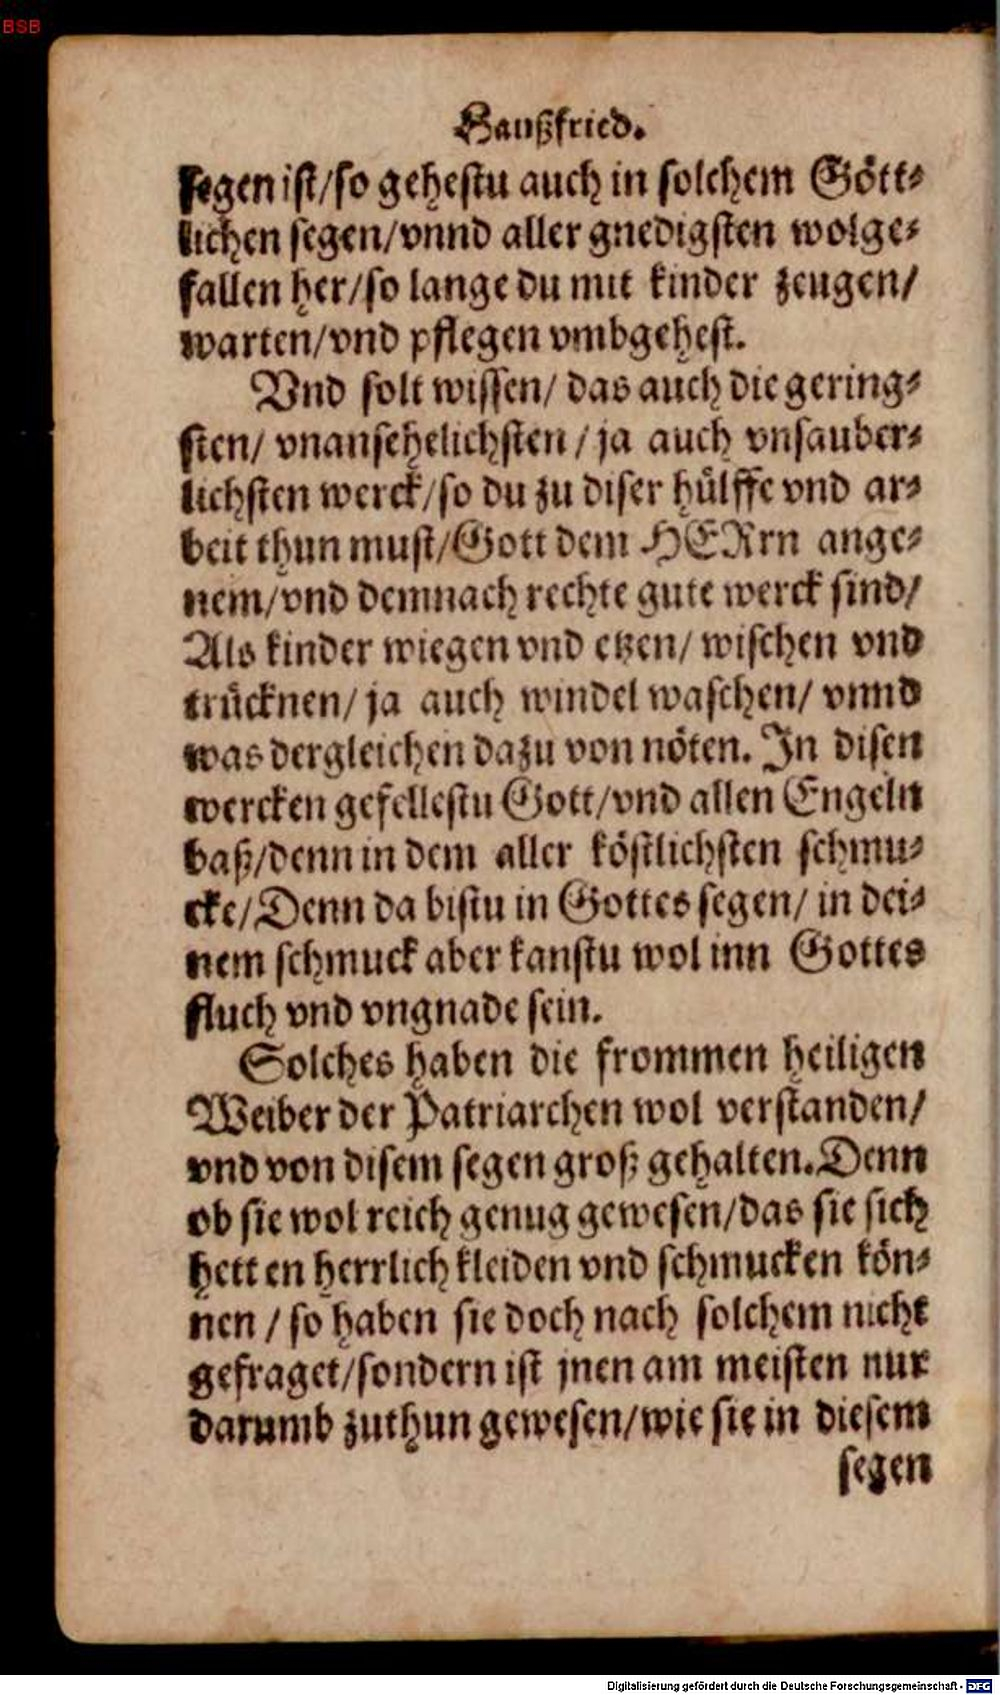 BSB
Haußfried.
segen ist/so gehestu auch in solchem Gött⸗
lichen segen/vnnd aller gnedigsten wolge⸗
fallen her/so lange du mit kinder zeugen/
warten/vnd pflegen vmbgehest.
Vnd solt wissen/ das auch die gering⸗
sten/ vnansehelichsten / ja auch vnsauber⸗
lichsten werck/so du zu diser hülffe vnd ar⸗
beit thun must/Gott dem HERrn ange⸗
nem/vnd demnach rechte gute werck sind/
Als kinder wiegen vnd etzen/ wischen vnd
trücknen/ ja auch windel waschen/ vnnd
was dergleichen dazu von nöten. In disen
wercken gefellestu Gott/vnd allen Engeln
baß/denn in dem aller köstlichsten schmu⸗
cke/Denn da bistu in Gottes segen/ in dei⸗
nem schmuck aber kanstu wol inn Gottes
fluch vnd vngnade sein.
Solches haben die frommen heiligen
Weiber der Patriarchen wol verstanden/
vnd von disem segen groß gehalten. Denn
ob sie wol reich genug gewesen/das sie sich
hetten herrlich kleiden vnd schmucken kön⸗
nen / so haben sie doch nach solchem nicht
gefraget/sondern ist jnen am meisten nur
darumb zuthun gewesen/wie sie in diesem
segen
Digitalisierung gefördert durch die Deutsche Forschungsgemeinschaft - DFG